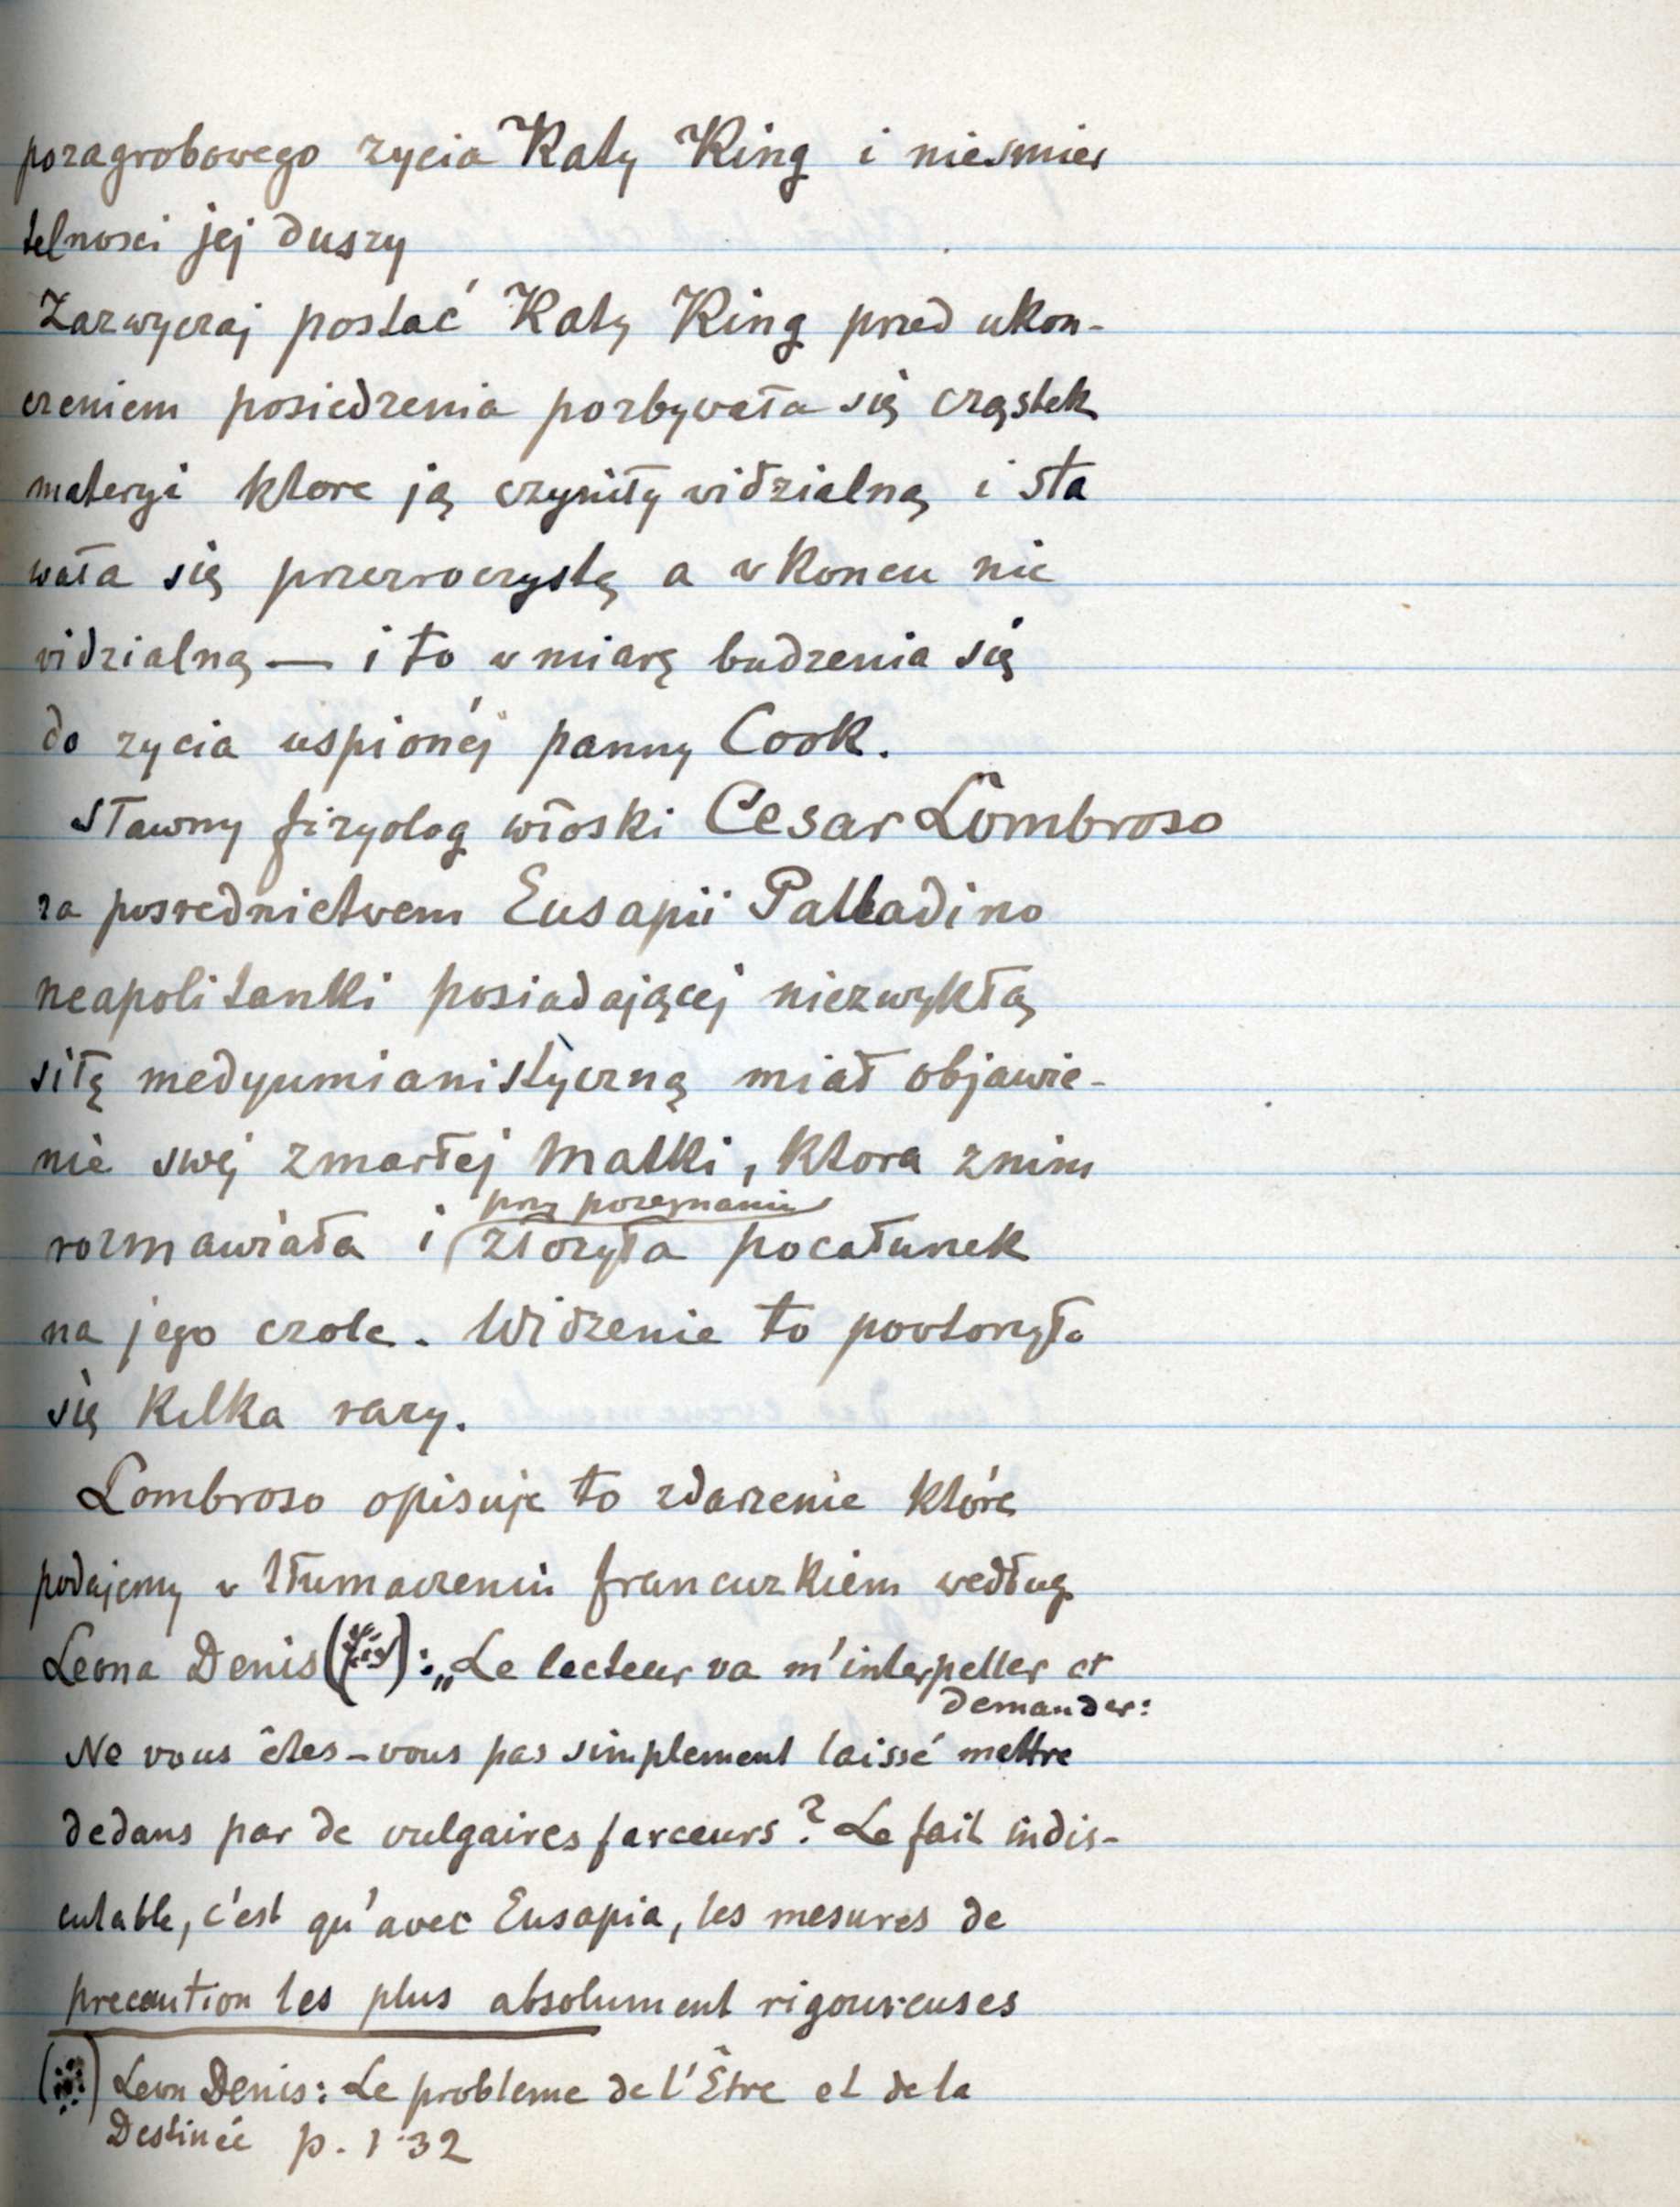 pozagrobowego zycia Katy King i niesmier
telnosci jej duszy
Zazwyczaj postać Katy King przed ukon-
czeniem posiedzenia pozbywała się cząstek
materyi ktore ją czyniły widzialną i sta
wała się przezroczystą a w koncu nie
widzialną — i to w miarę budzenia się
do zycia uspionéj panny Cook.
Sławny fizyolog włoski Cesar Lombroso
za posrednictwem Eusapii Palladino
neapolitanki posiadającej niezwykłą
siłę medyumianistyczną miał objawie-
nie swej zmarłej Matki, ktora znim
przy pozegnaniu
rozmawiała i złozyła pocałunek
na jego czole. Widzenie to powtorzyło
się kilka razy.
Lombroso opisuje to zdarzenie któré
podajemy w tłumaczeniu francuzkiem według
Leona Denis (*) : „Le lecteur va m'interpeller et
demander:
Ne vous êtes-vous pas simplement laissé mettre
dedans par de vulgaires farceurs? Le fait indis-
cutable, c'est qu'avec Eusapia, les mesures de
precaution les plus absolument rigoureuses
(*) Leon Denis: Le probleme de l'Être et de la
Destinée p. 132